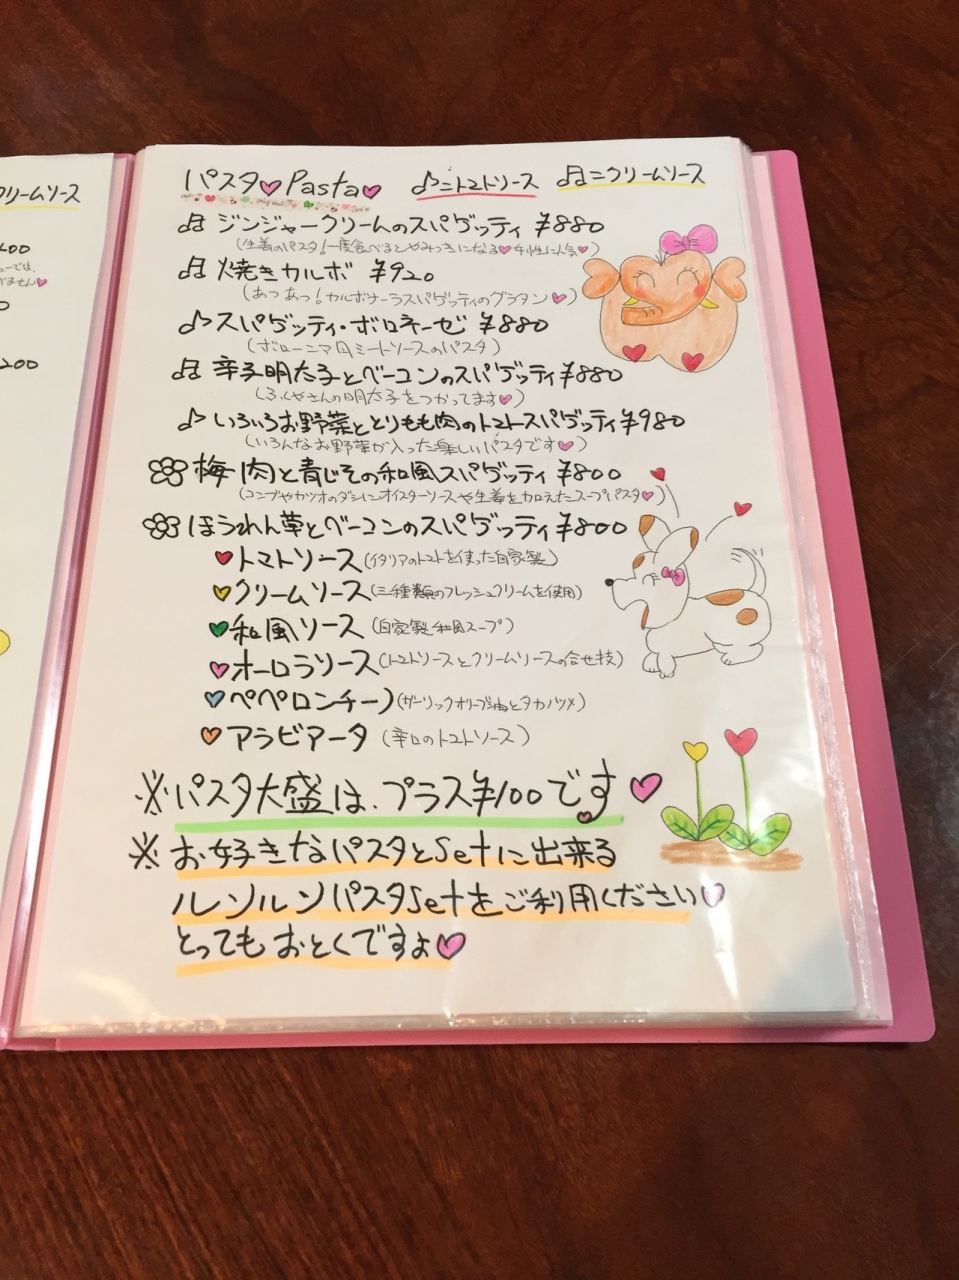 クリームソース
200
パスタ♥Pasta♥ ♪=トマトソース ♫=クリームソース
♫ ジンジャークリームのスパゲッティ ¥880
(生姜のパスタ!一度食べるとやみつきになる♥女性に人気♥)
♫ 焼きカルボ ¥920
(あつあつ!カルボナーラスパゲッティのグラタン♥)
♪ スパゲッティ・ボロネーゼ ¥880
(ボローニア風ミートソースのパスタ)
♫ 辛子明太子とベーコンのスパゲッティ ¥880
(ふくやさんの明太子をつかってます♥)
♪ いろいろお野菜ととりもも肉のトマトスパゲッティ ¥980
(いろんなお野菜が入った楽しいパスタです♥)
梅肉と青じその和風スパゲッティ ¥800
(コンブやカツオのダシにオイスターソースや生姜を加えたスープパスタ♥)
ほうれん草とベーコンのスパゲッティ ¥800
♥トマトソース(イタリアのトマトを使った自家製)
♥クリームソース(三種類のフレッシュクリームを使用)
♥和風ソース(自家製和風スープ)
♥オーロラソース(トマトソースとクリームソースの合せ技)
♥ペペロンチーノ(ガーリックオリーブ油とタカノツメ)
♥アラビアータ(辛口のトマトソース)
※パスタ大盛は、プラス¥100です♥
※お好きなパスタとSetに出来る
ルンルンパスタSetをご利用ください♥
とってもおとくですよ♥